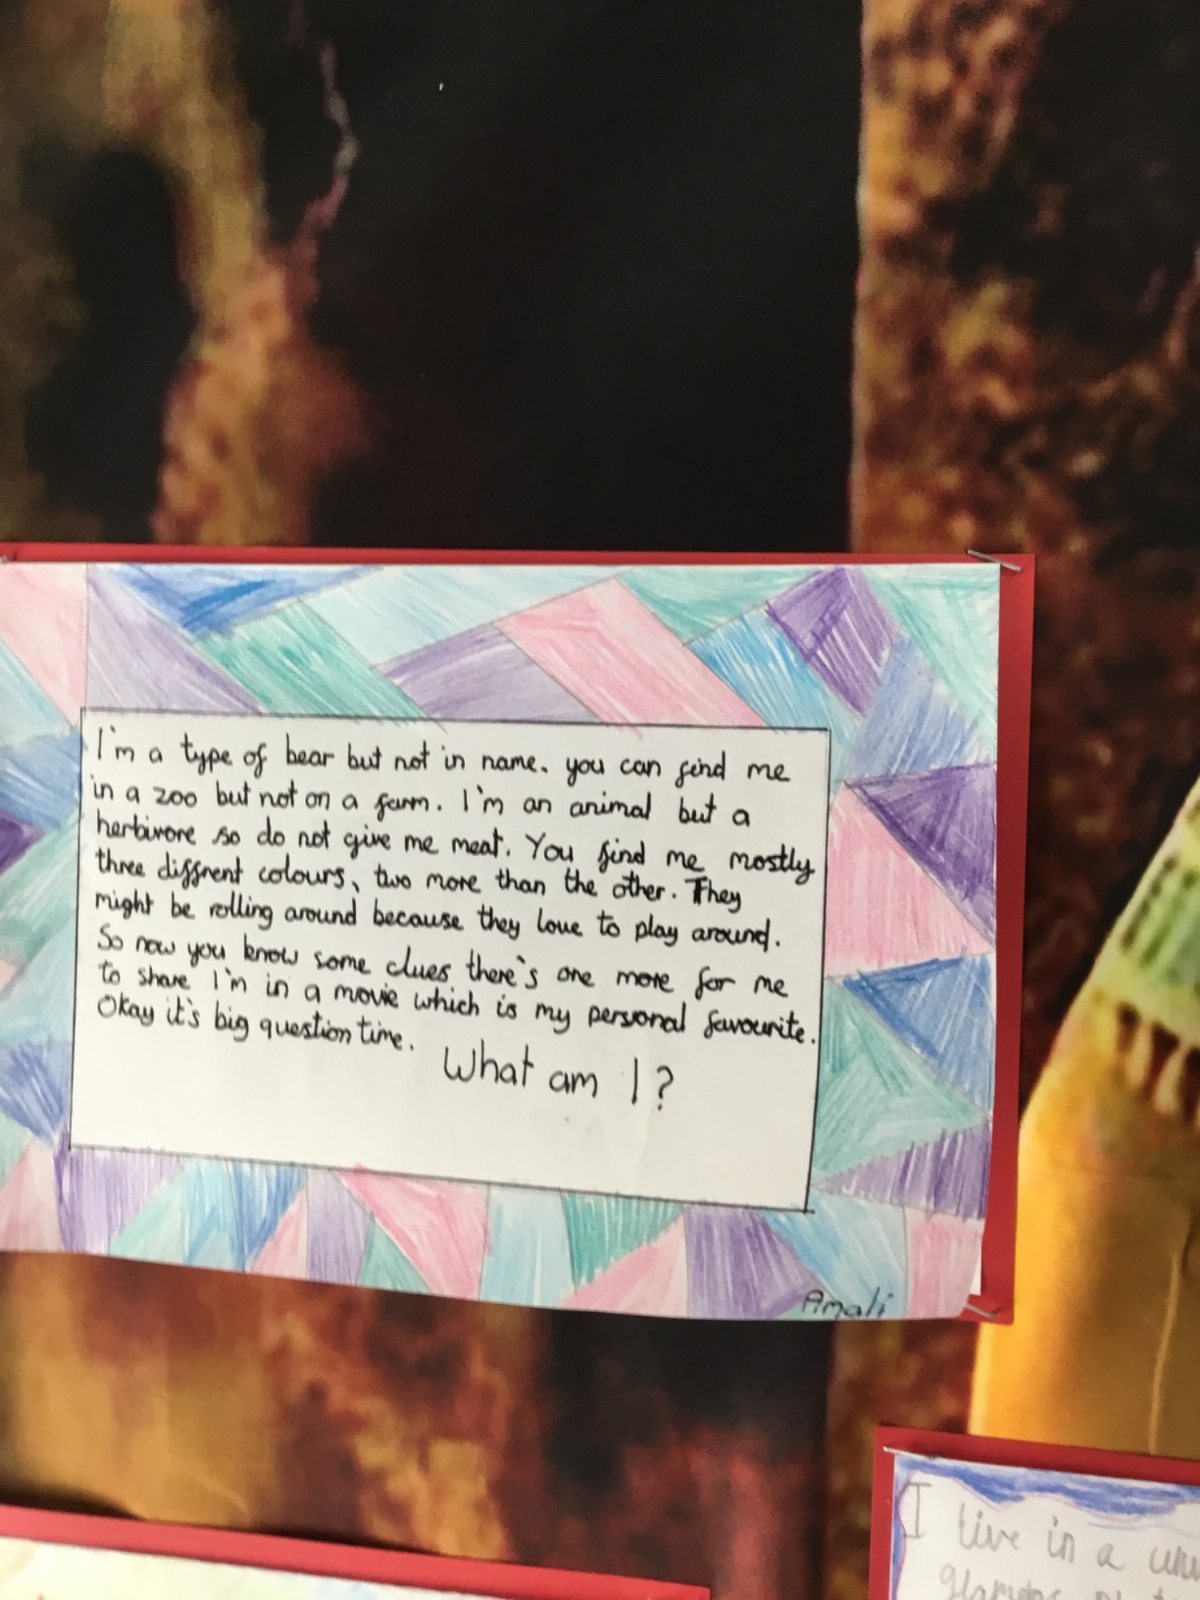 I'm a type of bear but not in name. you can find me
in a zoo but not on a farm. I'm an animal but a
herbivore so do not give me meat. You find me mostly
three diffrent colours, two more than the other. They
might be rolling around because they love to play around.
So now you know some clues there's one more for me
to share I'm in a movie which is my personal favourite.
Okay it's big question time.
What am I?
Amali
I live in a